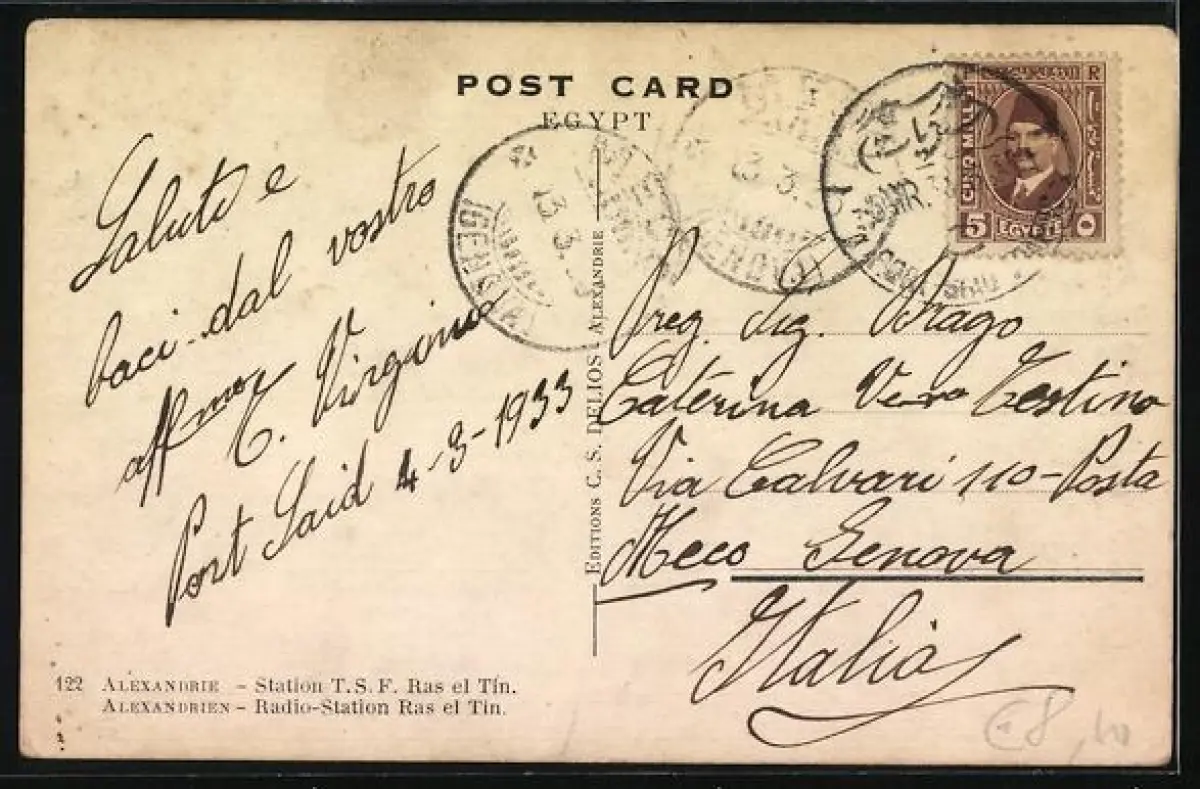 POST CARD
EGYPT
Saluti e
baci dal vostro
aff mo
C. Virginio
Port Said 4-3-1933
EDITIONS C. S. DELIOS - ALEXANDRIE
CINQ MILLS
5 EGYPTE ٥
13. 3.
Preg. Sig. Brago
Caterina Testino
Via Calvari 110-Posta
Meco Genova
Italia
122 ALEXANDRIE - Station T.S.F. Ras el Tín.
ALEXANDRIEN - Radio-Station Ras el Tin.